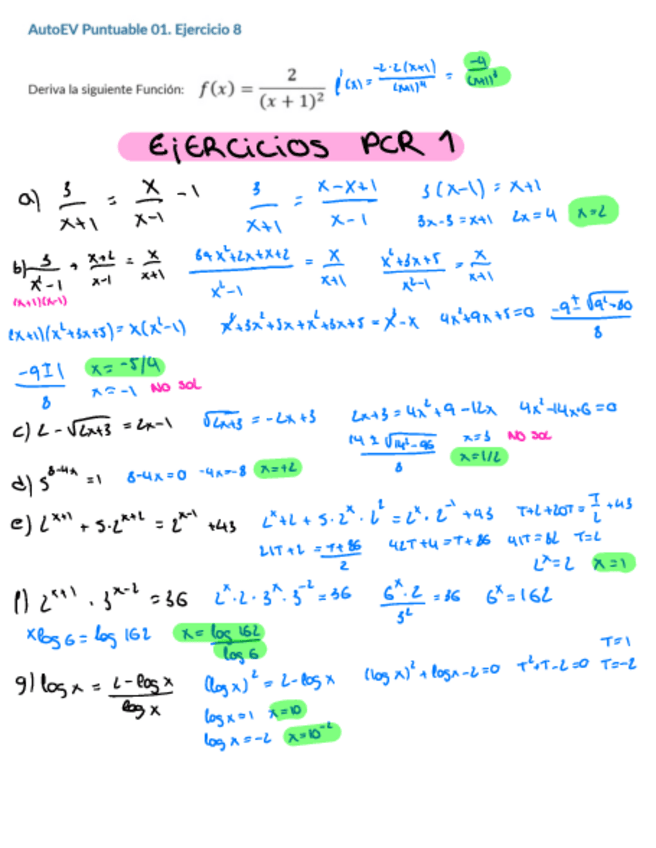 AutoEV Puntuable 01. Ejercicio 8
Deriva la siguiente Función: f(x) = 2/(x + 1)² f'(x) = -2·2(x+1)/(x+1)⁴ = -4/(x+1)³
EJERCICIOS PCR 1
a) 3/(x+1) = x/(x-1) - 1 3/(x+1) = (x-x+1)/(x-1) 3(x-1) = x+1
3x-3=x+1 2x=4 x=2
b) 3/(x²-1) + (x+2)/(x-1) = x/(x+1) (3+x²+2x+x+2)/(x²-1) = x/(x+1) (x²+3x+5)/(x²-1) = x/(x+1)
(x+1)(x-1)
(x+1)(x²+3x+5) = x(x²-1) x³+3x²+5x+x²+3x+5 = x³-x 4x²+9x+5=0 (-9±√(9²-80))/8
(-9±1)/8 x = -5/4
x = -1 NO SOL
c) 2-√(2x+3) = 2x-1 √(2x+3) = -2x+3 2x+3 = 4x²+9-12x 4x²-14x+6=0
(14±√(14²-96))/8 x=3 NO SOL
x=1/2
d) 5^(8-4x) = 1 8-4x=0 -4x=-8 x=+2
e) 2^(x+1) + 5·2^(x+2) = 2^(x-1) +43 2^x+2 + 5·2^x·2² = 2^x·2^-1 +43 T+2+20T = T/2 +43
21T+2 = (T+86)/2 42T+4=T+86 41T=82 T=2
2^x=2 x=1
f) 2^(x+1) · 3^(x-2) = 36 2^x·2·3^x·3^-2 = 36 (6^x·2)/3² = 36 6^x = 162
x log 6 = log 162 x = log 162/log 6
T=1
g) log x = (2-log x)/log x (log x)² = 2-log x (log x)² + log x-2=0 T²+T-2=0 T=-2
log x = 1 x=10
log x = -2 x=10^-2